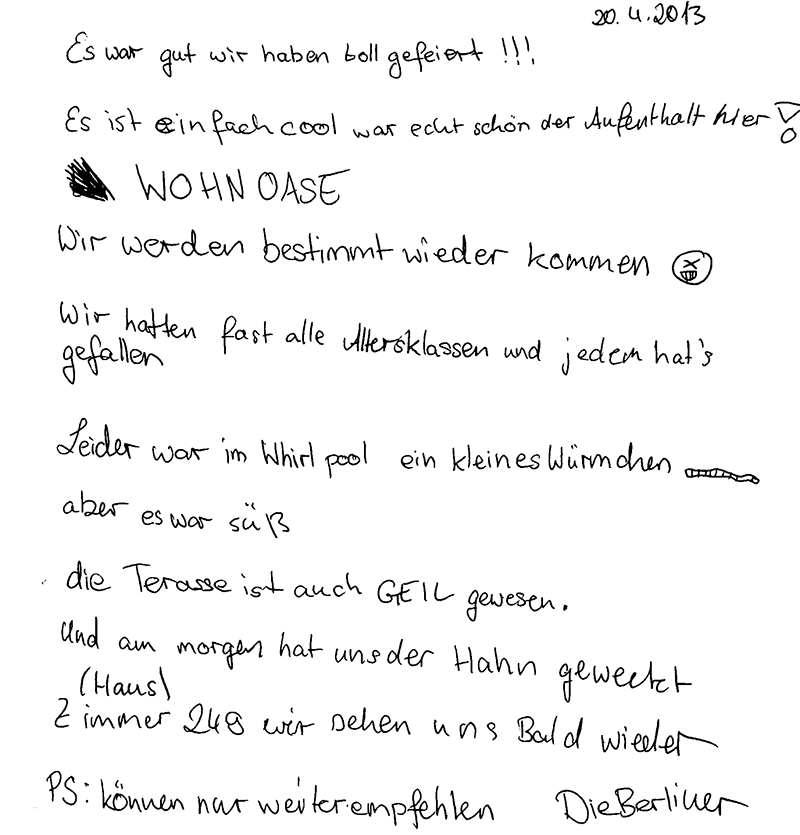 20.4.2013
Es war gut wir haben boll gefeiert !!!
Es ist einfach cool war echt schön der Aufenthalt hier!
WOHN OASE
Wir werden bestimmt wieder kommen
Wir hatten fast alle Altersklassen und jedem hat's
gefallen
Leider war im Whirl pool ein kleines Würmchen
aber es war süß
die Terasse ist auch GEIL gewesen.
Und am morgen hat uns der Hahn geweckt
(Haus)
Zimmer 248 wir sehen uns Bald wieder
PS: können nur weiter.empfehlen Die Berliner